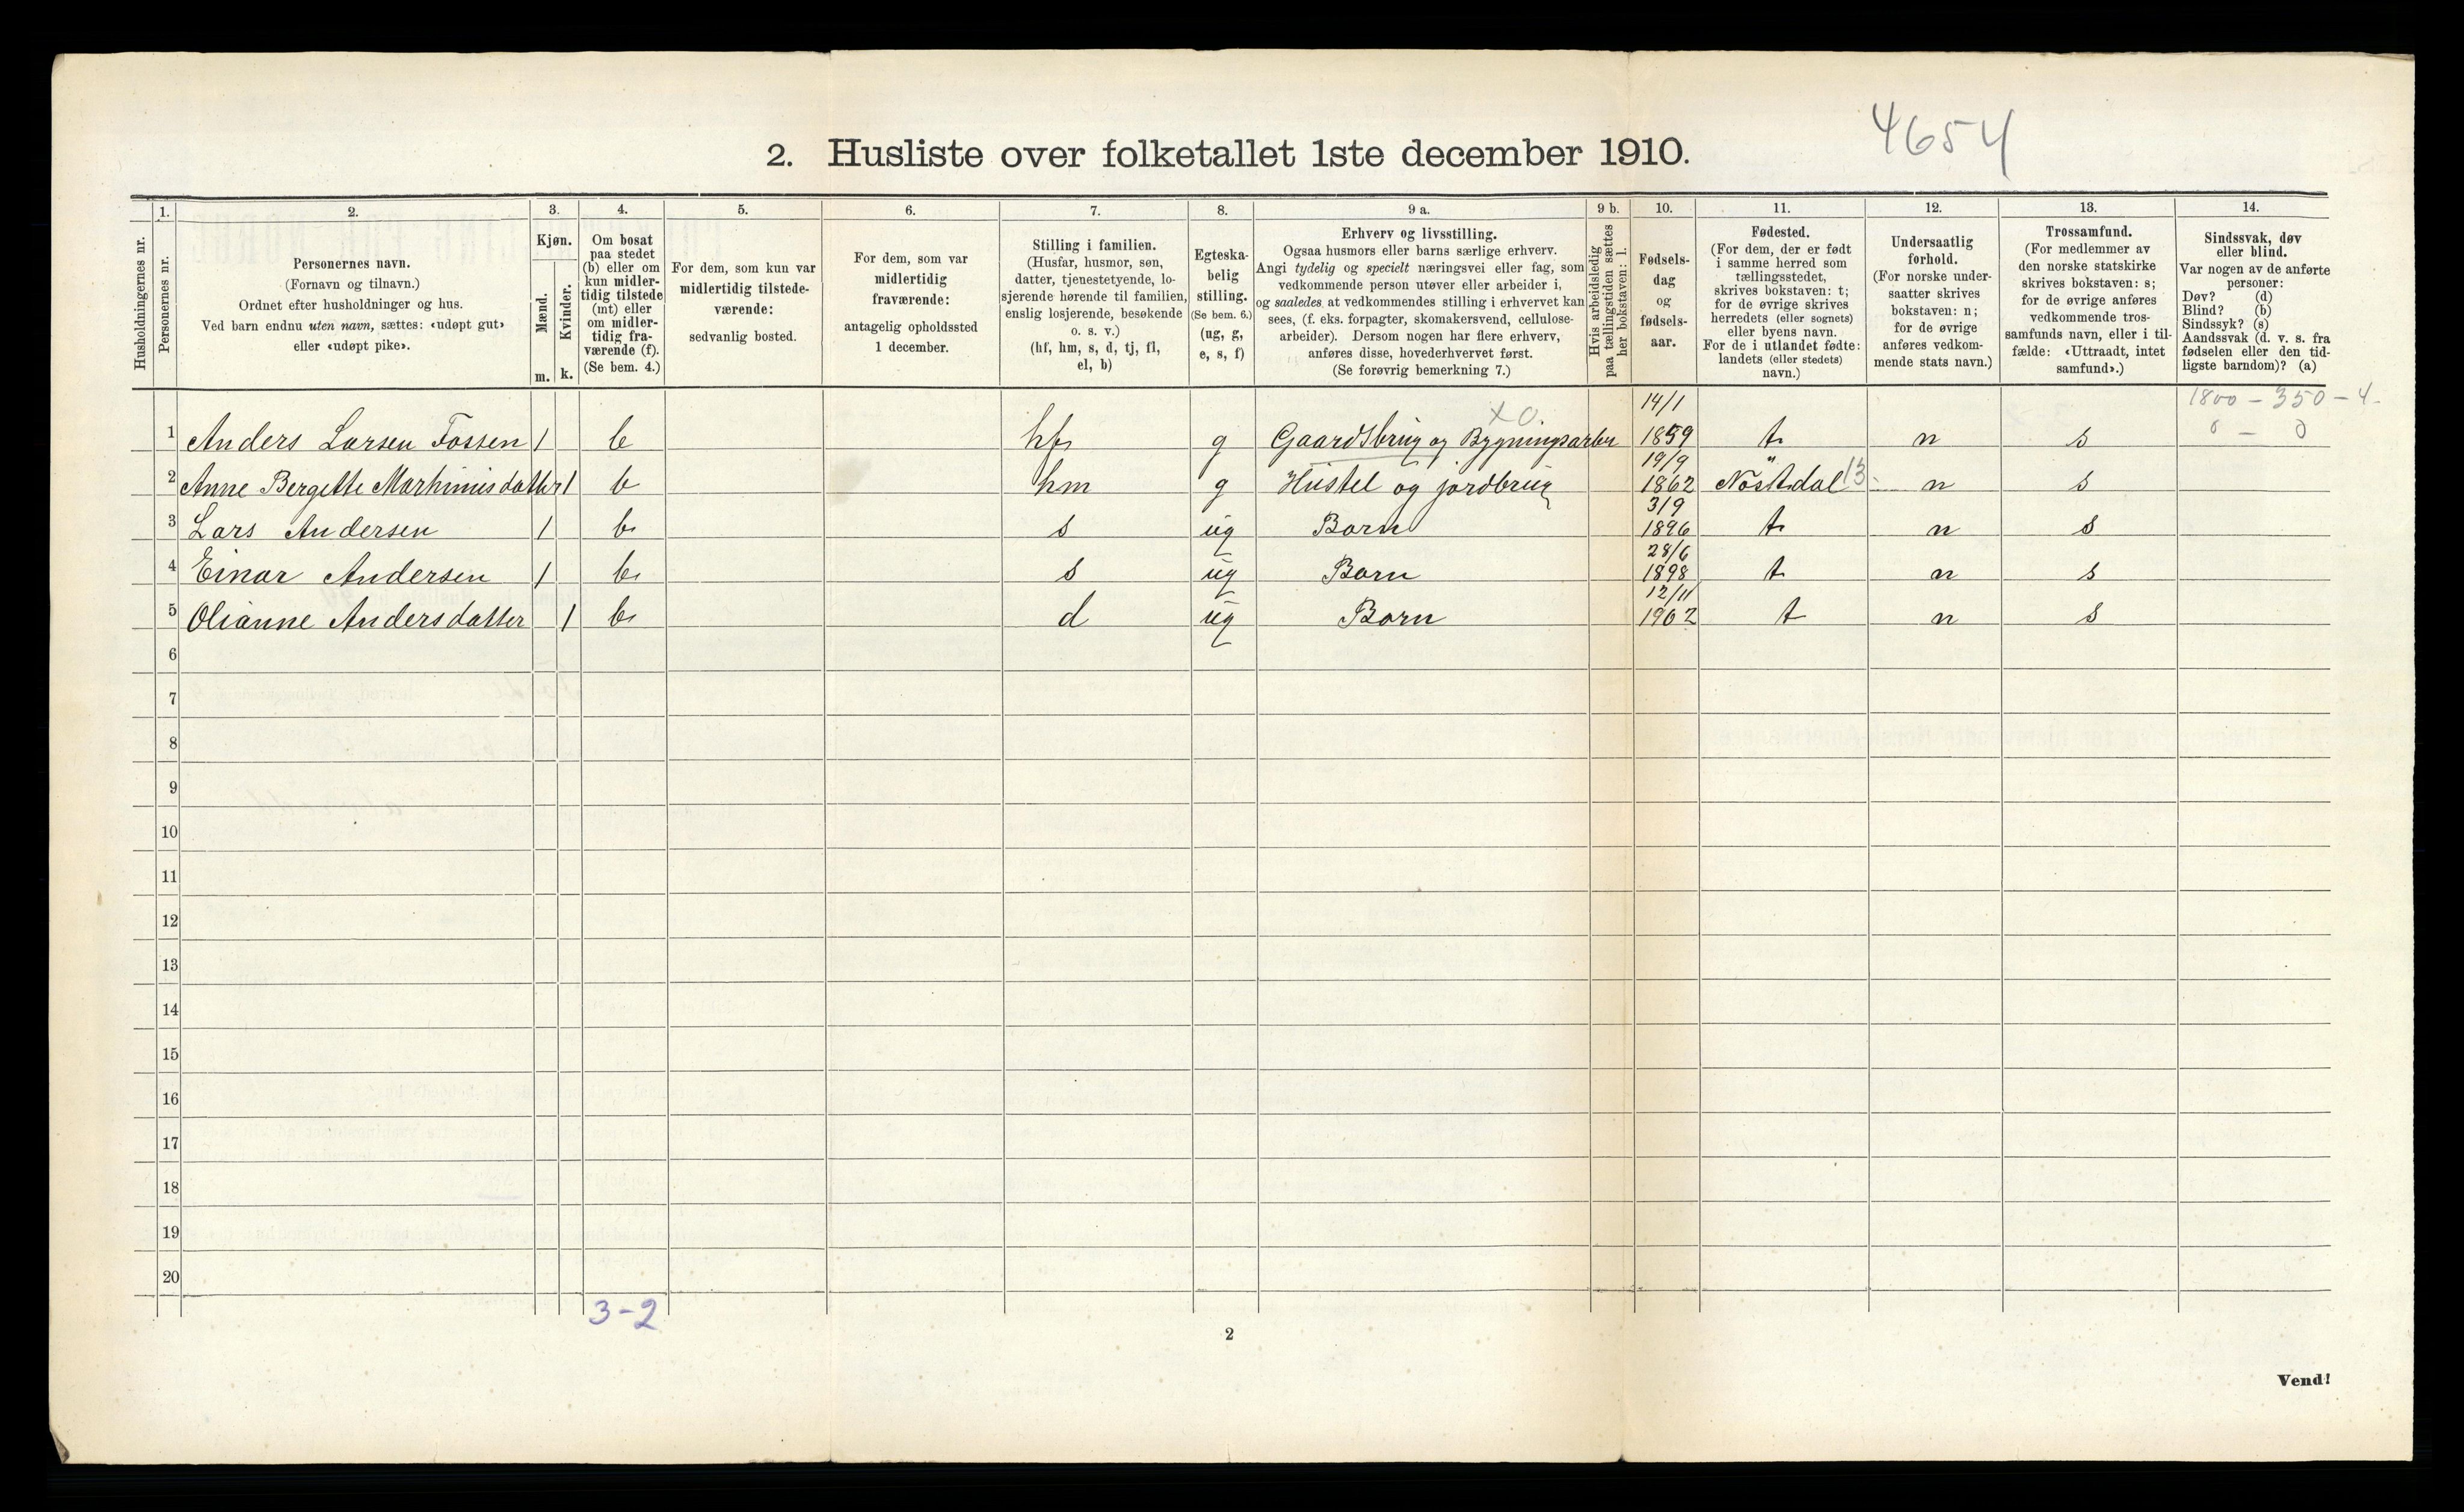 4654
2. Husliste over folketallet 1ste december 1910.
Husholdningernes nr.
1.
Personernes nr.
2.
Personernes navn.
(Fornavn og tilnavn.)
Ordnet efter husholdninger og hus.
Ved barn endnu uten navn, sættes: «udøpt gut»
eller «udøpt pike».
3.
Kjøn.
Mænd.
Kvinder.
m.
k.
4.
Om bosat
paa stedet
(b) eller om
kun midler-
tidig tilstede
(mt) eller
om midler-
tidig fra-
værende (f).
(Se bem. 4.)
5.
For dem, som kun var
midlertidig tilstede-
værende:
sedvanlig bosted.
6.
For dem, som var
midlertidig
fraværende:
antagelig opholdssted
1 december.
7.
Stilling i familien.
(Husfar, husmor, søn,
datter, tjenestetyende, lo-
sjerende hørende til familien,
enslig losjerende, besøkende
o. s. v.)
(hf, hm, s, d, tj, fl,
el, b)
8.
Egteska-
belig
stilling.
(Se bem. 6.)
(ug, g,
e, s, f)
9 a.
Erhverv og livsstilling.
Ogsaa husmors eller barns særlige erhverv.
Angi tydelig og specielt næringsvei eller fag, som
vedkommende person utøver eller arbeider i,
og saaledes at vedkommendes stilling i erhvervet kan
sees, (f. eks. forpagter, skomakersvend, cellulose-
arbeider). Dersom nogen har flere erhverv,
anføres disse, hovederhvervet først.
(Se forøvrig bemerkning 7.)
9 b.
Hvis arbeidsledig
paa tællingstiden sættes
her bokstaven: l.
10.
Fødsels-
dag
og
fødsels-
aar.
11.
Fødested.
(For dem, der er født
i samme herred som
tællingsstedet,
skrives bokstaven: t;
for de øvrige skrives
herredets (eller sognets)
eller byens navn.
For de i utlandet fødte:
landets (eller stedets)
navn.)
12.
Undersaatlig
forhold.
(For norske under-
saatter skrives
bokstaven: n;
for de øvrige
anføres vedkom-
mende stats navn.)
13.
Trossamfund.
(For medlemmer av
den norske statskirke
skrives bokstaven: s;
for de øvrige anføres
vedkommende tros-
samfunds navn, eller i til-
fælde: «Uttraadt, intet
samfund».)
14.
Sindssvak, døv
eller blind.
Var nogen av de anførte
personer:
Døv? (d)
Blind? (b)
Sindssyk? (s)
Aandssvak (d. v. s. fra
fødselen eller den tid-
ligste barndom)? (a)
1800 - 350 - 4-
0 - 0
x 0.
1 Anders Larsen Fossen 1 b hf g Gaardsbrug og Bygningsarbei 14/1 1859 t n s
2 Anne Bergette Markinisdatter 1 b hm g Hustel og jordbrug 19/9 1862 Nöstdal 13 n s
3 Lars Andersen 1 b s ug Barn 3/9 1896 t n s
4 Einar Andersen 1 b s ug Barn 28/6 1898 t n s
5 Olianne Andersdatter 1 b d ug Barn 12/11 1902 t n s
6
7
8
9
10
11
12
13
14
15
16
17
18
19
20
3-2
2
Vend!